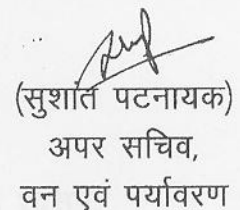 (सुशांत पटनायक)
अपर सचिव,
वन एवं पर्यावरण